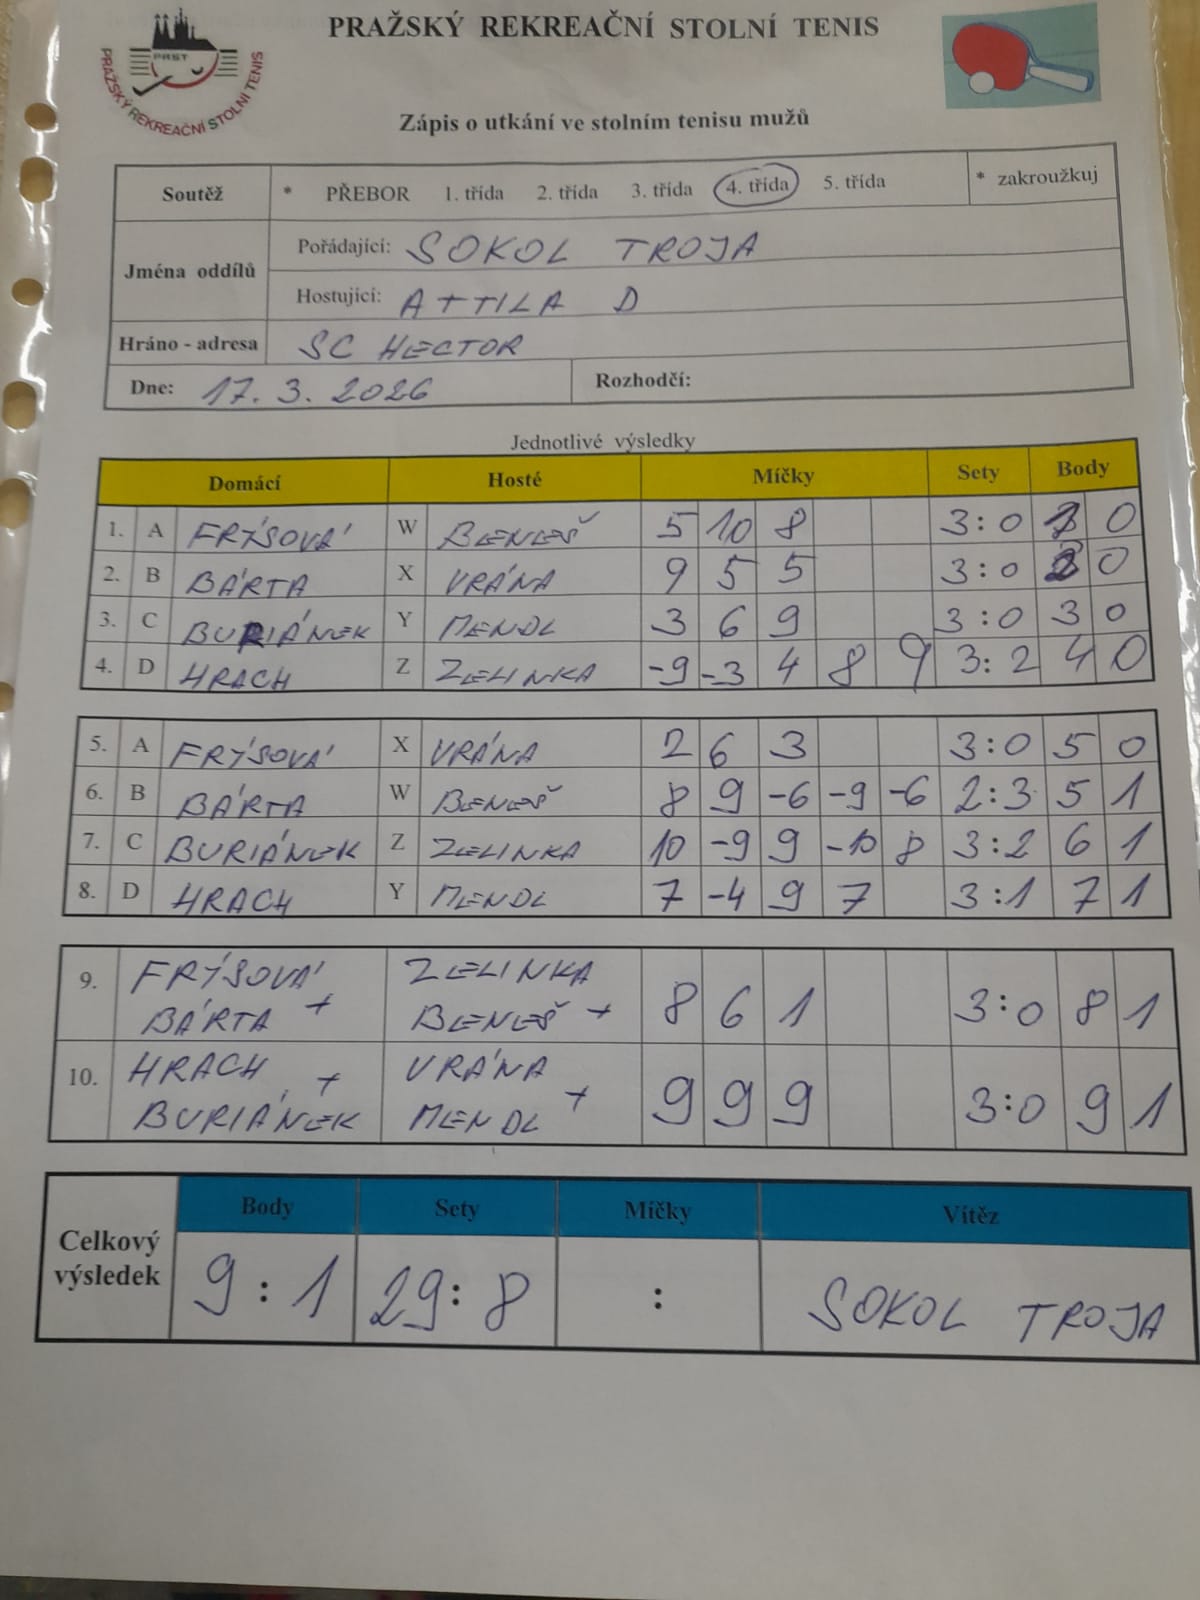 PRAŽSKÝ REKREAČNÍ STOLNÍ TENIS
PRST
PRAŽSKÝ REKREAČNÍ STOLNÍ TENIS
Zápis o utkání ve stolním tenisu mužů
Soutěž * PŘEBOR 1. třída 2. třída 3. třída 4. třída 5. třída * zakroužkuj
Jména oddílů
Pořádající: SOKOL TROJA
Hostující: ATTILA D
Hráno - adresa SC HECTOR
Dne: 17. 3. 2026 Rozhodčí:
Jednotlivé výsledky
Domácí Hosté Míčky Sety Body
1. A FRÝSOVÁ W BLENEŠ 5 10 8 3:0 1 0
2. B BÁRTA X VRÁNA 9 5 5 3:0 2 0
3. C BURIÁNEK Y MENDL 3 6 9 3:0 3 0
4. D HRACH Z ZELINKA -9 -3 4 8 9 3:2 4 0
5. A FRÝSOVÁ X VRÁNA 2 6 3 3:0 5 0
6. B BÁRTA W BLENEŠ 8 9 -6 -9 -6 2:3 5 1
7. C BURIÁNEK Z ZELINKA 10 -9 9 -10 8 3:2 6 1
8. D HRACH Y MENDL 7 -4 9 7 3:1 7 1
9. FRÝSOVÁ + BÁRTA ZELINKA + BLENEŠ 8 6 1 3:0 8 1
10. HRACH + BURIÁNEK VRÁNA + MENDL 9 9 9 3:0 9 1
Celkový výsledek
Body Sety Míčky Vítěz
9:1 29:8 : SOKOL TROJA